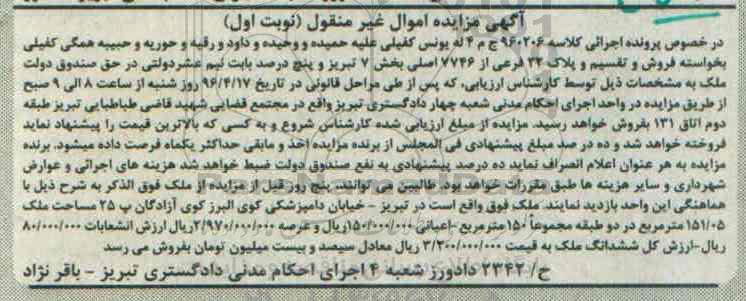 آگهی مزایده اموال غیر منقول (نوبت اول)
در خصوص پرونده اجرائی کلاسه ۹۶۰۲۰۶ ج م ۴ له یونس کفیلی علیه حمیده و وحیده و داود و رقیه و حوریه و حبیبه همگی کفیلی
بخواسته فروش و تقسیم و پلاک ۲۲ فرعی از ۷۷۴۶ اصلی بخش ۷ تبریز و پنج درصد بابت نیم عشردولتی در حق صندوق دولت
ملک به مشخصات ذیل توسط کارشناس ارزیابی، که پس از طی مراحل قانونی در تاریخ ۹۶/۴/۱۷ روز شنبه از ساعت ۸ الی ۹ صبح
از طریق مزایده در واحد اجرای احکام مدنی شعبه چهار دادگستری تبریز واقع در مجتمع قضایی شهید قاضی طباطبایی تبریز طبقه
دوم اتاق ۱۳۱ بفروش خواهد رسید. مزایده از مبلغ ارزیابی شده کارشناس شروع و به کسی که بالاترین قیمت را پیشنهاد نماید
فروخته خواهد شد و ده در صد مبلغ پیشنهادی فی المجلس از برنده مزایده اخذ و مابقی حداکثر یکماه فرصت داده میشود. برنده
مزایده به هر عنوان اعلام انصراف نماید ده درصد پیشنهادی به نفع صندوق دولت ضبط خواهد شد هزینه های اجرائی و عوارض
شهرداری و سایر هزینه ها طبق مقررات خواهد بود. طالبین می توانند، پنج روز قبل از مزایده از ملک فوق الذکر به شرح ذیل با
هماهنگی این واحد بازدید نمایند. ملک فوق واقع است در تبریز - خیابان دامپزشکی کوی البرز کوی آزادگان پ ۲۵ مساحت ملک
۱۵۱/۰۵ مترمربع در دو طبقه مجموعاً ۱۵۰ مترمربع -اعیانی ۱۵۰/۰۰۰/۰۰۰ریال و عرصه ۲/۹۷۰/۰۰۰/۰۰۰ریال ارزش انشعابات ۸۰/۰۰۰/۰۰۰
ریال-ارزش کل ششدانگ ملک به قیمت ۳/۲۰۰/۰۰۰/۰۰۰ ریال معادل سیصد و بیست میلیون تومان بفروش می رسد
ح/ ۲۳۴۲ دادورز شعبه ۴ اجرای احکام مدنی دادگستری تبریز - باقر نژاد